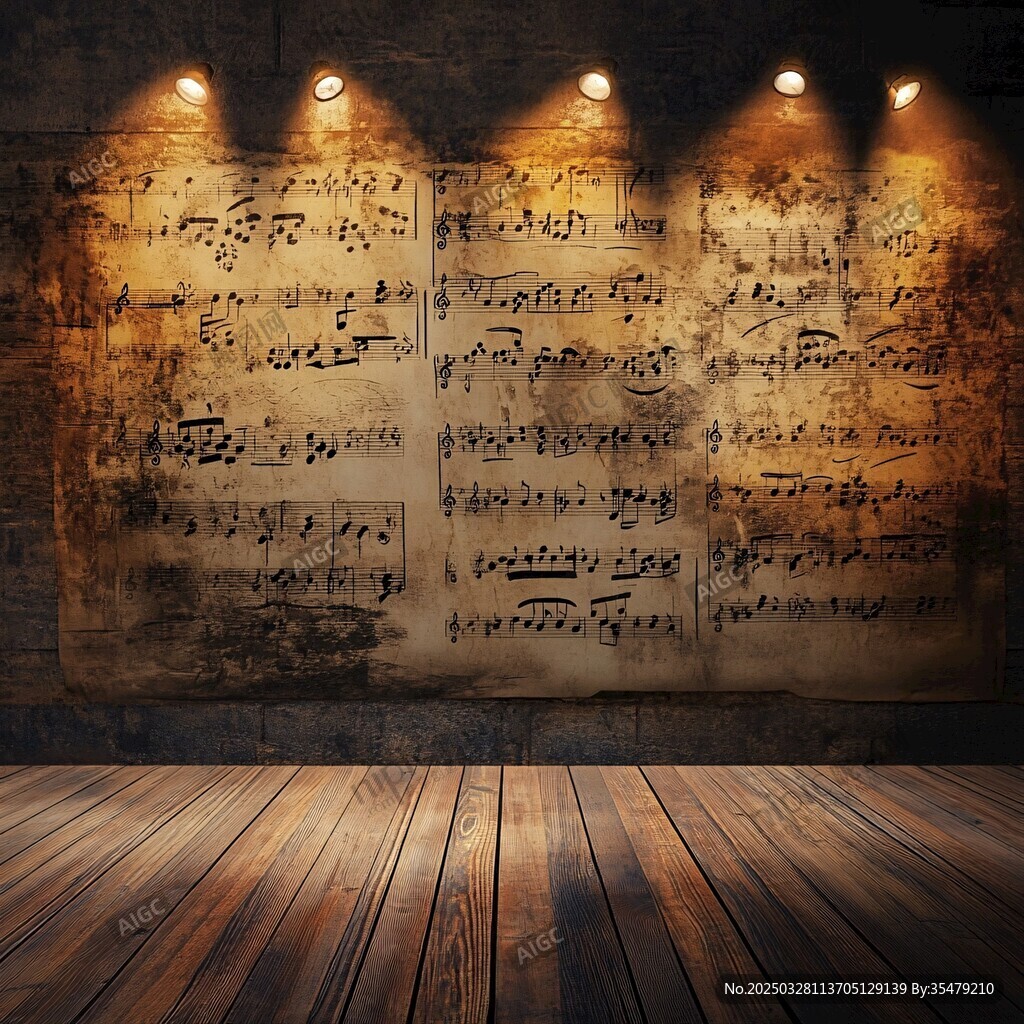 AIGC
AIGC
AIGC
AIGC
AIGC
AIGC
AIGC
No.20250328113705129139 By:35479210